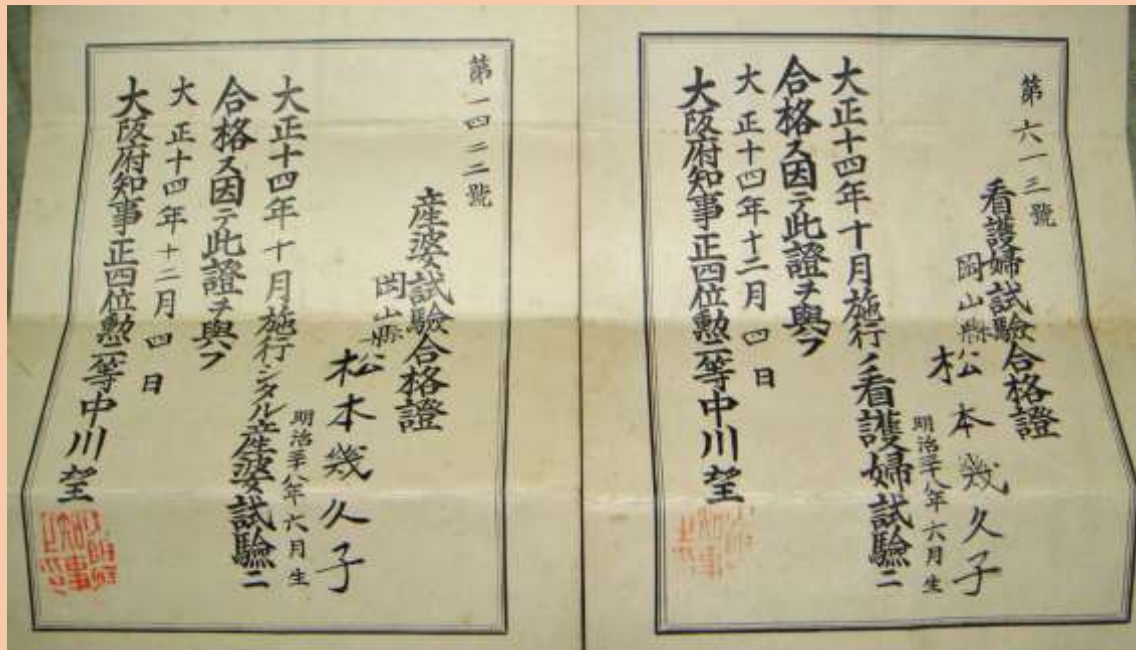 第六一三號
看護婦試驗合格證
岡山縣
松本幾久子
明治三十八年六月生
大正十四年十月施行ノ看護婦試驗ニ
合格ス因テ此證ヲ與フ
大正十四年十二月四日
大阪府知事正四位勲二等中川望
第一四二二號
産婆試驗合格證
岡山縣
松本幾久子
明治三十八年六月生
大正十四年十月施行シタル産婆試驗ニ
合格ス因テ此證ヲ與フ
大正十四年十二月四日
大阪府知事正四位勲二等中川望